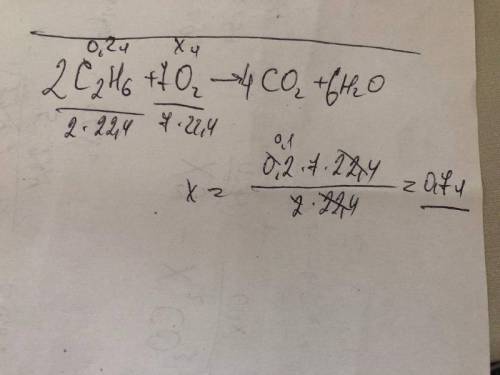 0,2л xл
2C₂H₆ + 7O₂ → 4CO₂ + 6H₂O
2·22,4 7·22,4
0,1
x = 0,2·7·22,4 / 2·22,4 = 0,7л